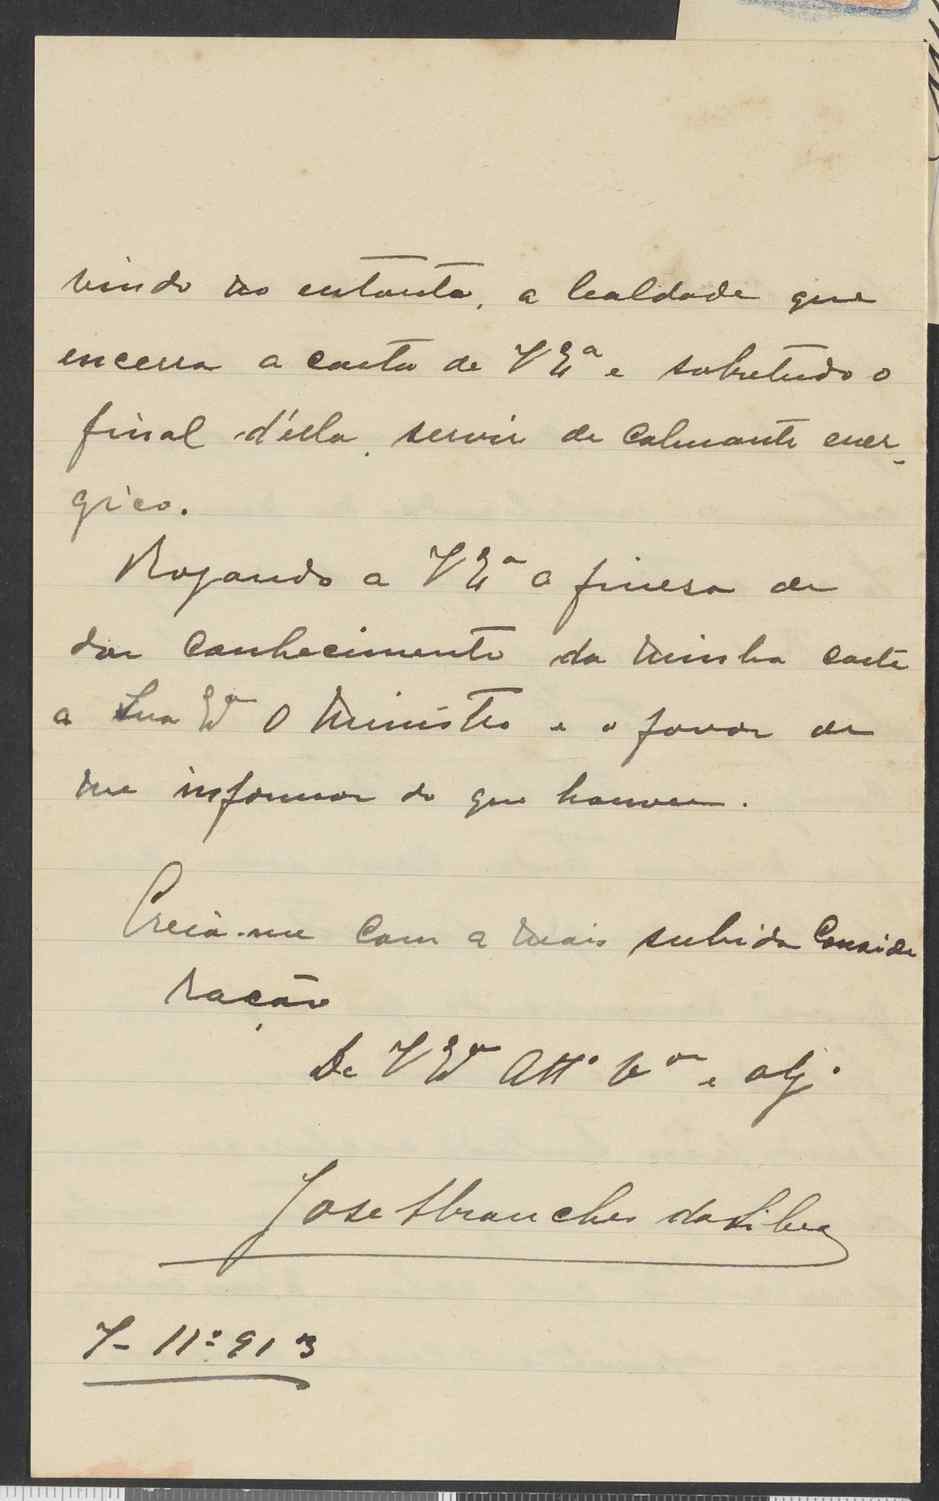 vindo no entanto, a lealdade que
encerra a carta de V Exª e sobretudo o
final d'ella, servir de calmante ener-
gico.
Rogando a V Exª a finesa de
dar conhecimento da minha carta
a Sua Exª O Ministro e o favor de
me informar do que houver.
Creia-me com a mais subida Conside
ração
De V Exª Attº Vºr e obgº
Jose Abranches da Silva
7-11º-913